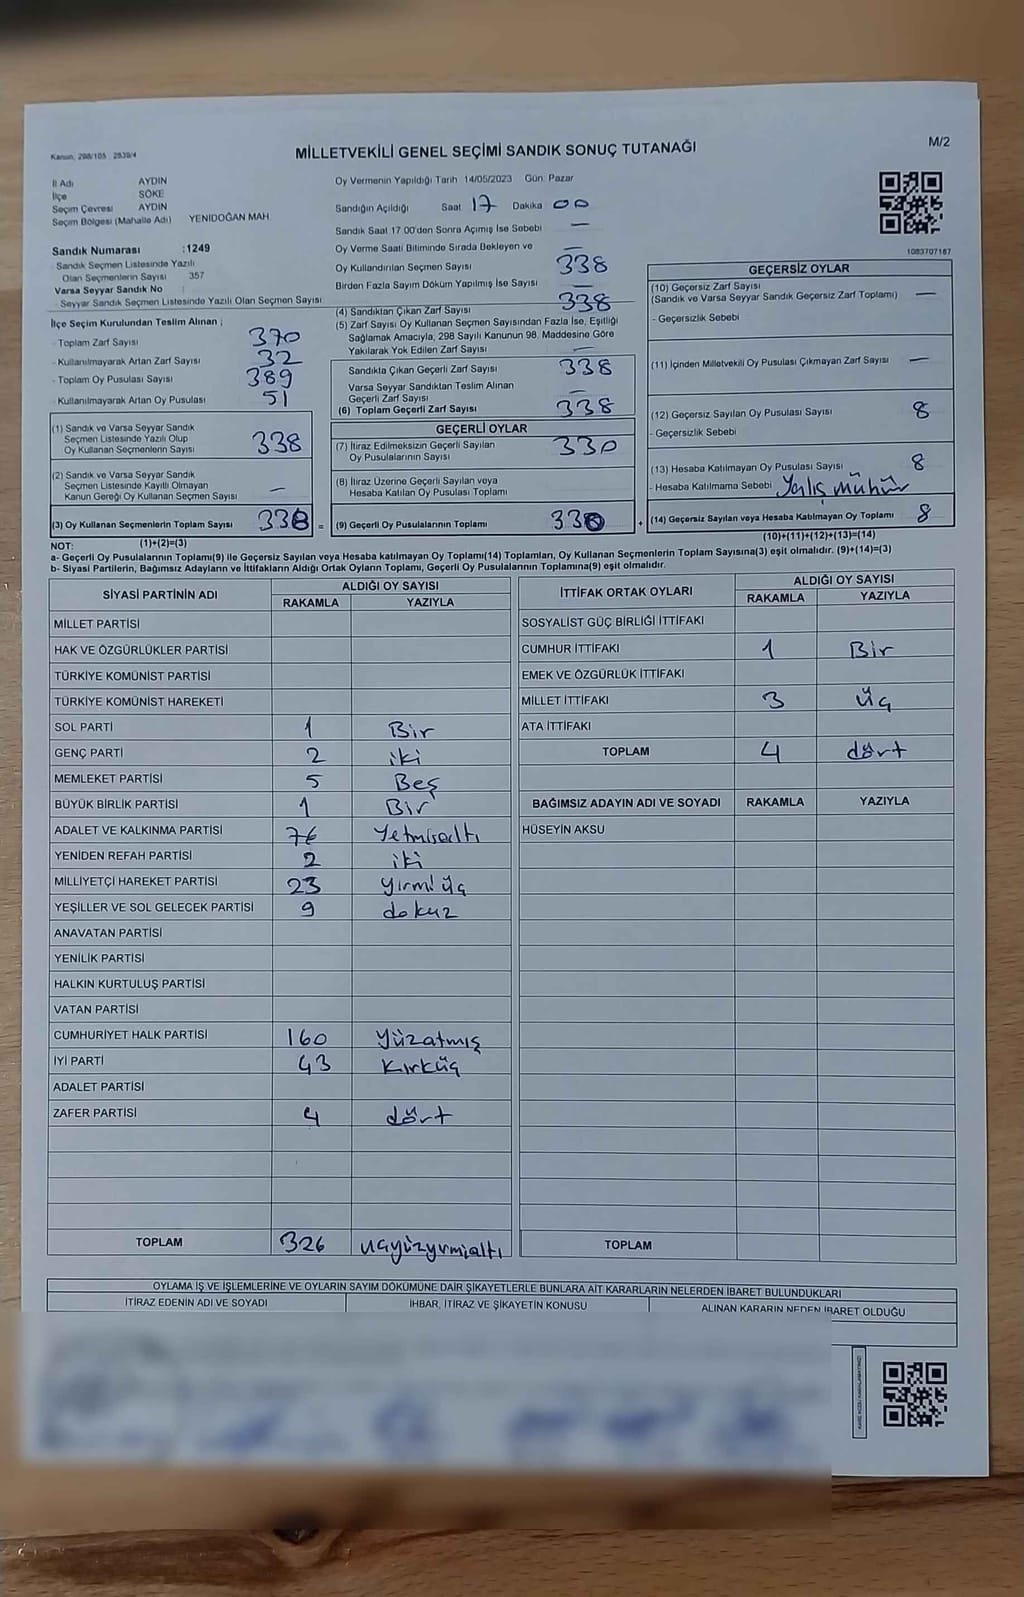 Kanun, 298/105 2839/4
MİLLETVEKİLİ GENEL SEÇİMİ SANDIK SONUÇ TUTANAĞI
M/2
İl Adı AYDIN
İlçe SÖKE
Seçim Çevresi AYDIN
Seçim Bölgesi (Mahalle Adı) YENİDOĞAN MAH.
Sandık Numarası :1249
- Sandık Seçmen Listesinde Yazılı
Olan Seçmenlerin Sayısı 357
Varsa Seyyar Sandık No :
- Seyyar Sandık Seçmen Listesinde Yazılı Olan Seçmen Sayısı
İlçe Seçim Kurulundan Teslim Alınan ;
- Toplam Zarf Sayısı 370
- Kullanılmayarak Artan Zarf Sayısı 32
- Toplam Oy Pusulası Sayısı 389
- Kullanılmayarak Artan Oy Pusulası 51
(1) Sandık ve Varsa Seyyar Sandık
Seçmen Listesinde Yazılı Olup
Oy Kullanan Seçmenlerin Sayısı 338
(2) Sandık ve Varsa Seyyar Sandık
Seçmen Listesinde Kayıtlı Olmayan
Kanun Gereği Oy Kullanan Seçmen Sayısı —
(3) Oy Kullanan Seçmenlerin Toplam Sayısı 338 =
Oy Vermenin Yapıldığı Tarih 14/05/2023 Gün: Pazar
Sandığın Açıldığı Saat 17 Dakika 00
Sandık Saat 17.00'den Sonra Açılmış İse Sebebi —
Oy Verme Saati Bitiminde Sırada Bekleyen ve —
Oy Kullandırılan Seçmen Sayısı 338
Birden Fazla Sayım Döküm Yapılmış İse Sayısı —
(4) Sandıktan Çıkan Zarf Sayısı 338
(5) Zarf Sayısı Oy Kullanan Seçmen Sayısından Fazla İse, Eşitliği
Sağlamak Amacıyla, 298 Sayılı Kanunun 98. Maddesine Göre
Yakılarak Yok Edilen Zarf Sayısı —
Sandıkta Çıkan Geçerli Zarf Sayısı 338
Varsa Seyyar Sandıktan Teslim Alınan
Geçerli Zarf Sayısı —
(6) Toplam Geçerli Zarf Sayısı 338
GEÇERLİ OYLAR
(7) İtiraz Edilmeksizin Geçerli Sayılan
Oy Pusulalarının Sayısı 330
(8) İtiraz Üzerine Geçerli Sayılan veya
Hesaba Katılan Oy Pusulası Toplamı
(9) Geçerli Oy Pusulalarının Toplamı 330 +
1083707167
GEÇERSİZ OYLAR
(10) Geçersiz Zarf Sayısı
(Sandık ve Varsa Seyyar Sandık Geçersiz Zarf Toplamı) —
- Geçersizlik Sebebi
(11) İçinden Milletvekili Oy Pusulası Çıkmayan Zarf Sayısı —
(12) Geçersiz Sayılan Oy Pusulası Sayısı 8
- Geçersizlik Sebebi
(13) Hesaba Katılmayan Oy Pusulası Sayısı 8
- Hesaba Katılmama Sebebi Yalış mühür
(14) Geçersiz Sayılan veya Hesaba Katılmayan Oy Toplamı 8
(10)+(11)+(12)+(13)=(14)
NOT: (1)+(2)=(3)
a- Geçerli Oy Pusulalarının Toplamı(9) ile Geçersiz Sayılan veya Hesaba katılmayan Oy Toplamı(14) Toplamları, Oy Kullanan Seçmenlerin Toplam Sayısına(3) eşit olmalıdır. (9)+(14)=(3)
b- Siyasi Partilerin, Bağımsız Adayların ve İttifakların Aldığı Ortak Oyların Toplamı, Geçerli Oy Pusulalarının Toplamına(9) eşit olmalıdır.
SİYASİ PARTİNİN ADI ALDIĞI OY SAYISI
RAKAMLA YAZIYLA
MİLLET PARTİSİ
HAK VE ÖZGÜRLÜKLER PARTİSİ
TÜRKİYE KOMÜNİST PARTİSİ
TÜRKİYE KOMÜNİST HAREKETİ
SOL PARTİ 1 Bir
GENÇ PARTİ 2 iki
MEMLEKET PARTİSİ 5 Beş
BÜYÜK BİRLİK PARTİSİ 1 Bir
ADALET VE KALKINMA PARTİSİ 76 Yetmişaltı
YENİDEN REFAH PARTİSİ 2 iki
MİLLİYETÇİ HAREKET PARTİSİ 23 yirmi üç
YEŞİLLER VE SOL GELECEK PARTİSİ 9 dokuz
ANAVATAN PARTİSİ
YENİLİK PARTİSİ
HALKIN KURTULUŞ PARTİSİ
VATAN PARTİSİ
CUMHURİYET HALK PARTİSİ 160 Yüzatmış
İYİ PARTİ 43 Kırküç
ADALET PARTİSİ
ZAFER PARTİSİ 4 dört
TOPLAM 326 üçyüzyirmialtı
İTTİFAK ORTAK OYLARI ALDIĞI OY SAYISI
RAKAMLA YAZIYLA
SOSYALİST GÜÇ BİRLİĞİ İTTİFAKI
CUMHUR İTTİFAKI 1 Bir
EMEK VE ÖZGÜRLÜK İTTİFAKI
MİLLET İTTİFAKI 3 üç
ATA İTTİFAKI
TOPLAM 4 dört
BAĞIMSIZ ADAYIN ADI VE SOYADI RAKAMLA YAZIYLA
HÜSEYİN AKSU
TOPLAM
OYLAMA İŞ VE İŞLEMLERİNE VE OYLARIN SAYIM DÖKÜMÜNE DAİR ŞİKAYETLERLE BUNLARA AİT KARARLARIN NELERDEN İBARET BULUNDUKLARI
İTİRAZ EDENİN ADI VE SOYADI İHBAR, İTİRAZ VE ŞİKAYETİN KONUSU ALINAN KARARIN NEDEN İBARET OLDUĞU